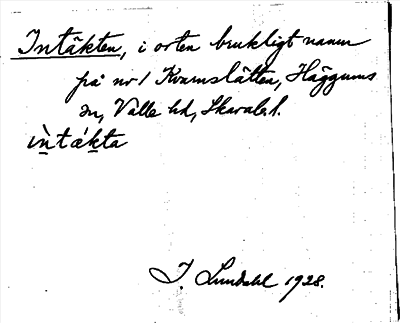 Intäkten, i orten brukligt namn
på nr 1 Kvarnslätten, Häggums
sn, Valle hd, Skarab. l.
ìntákta
I. Lundahl 1928.